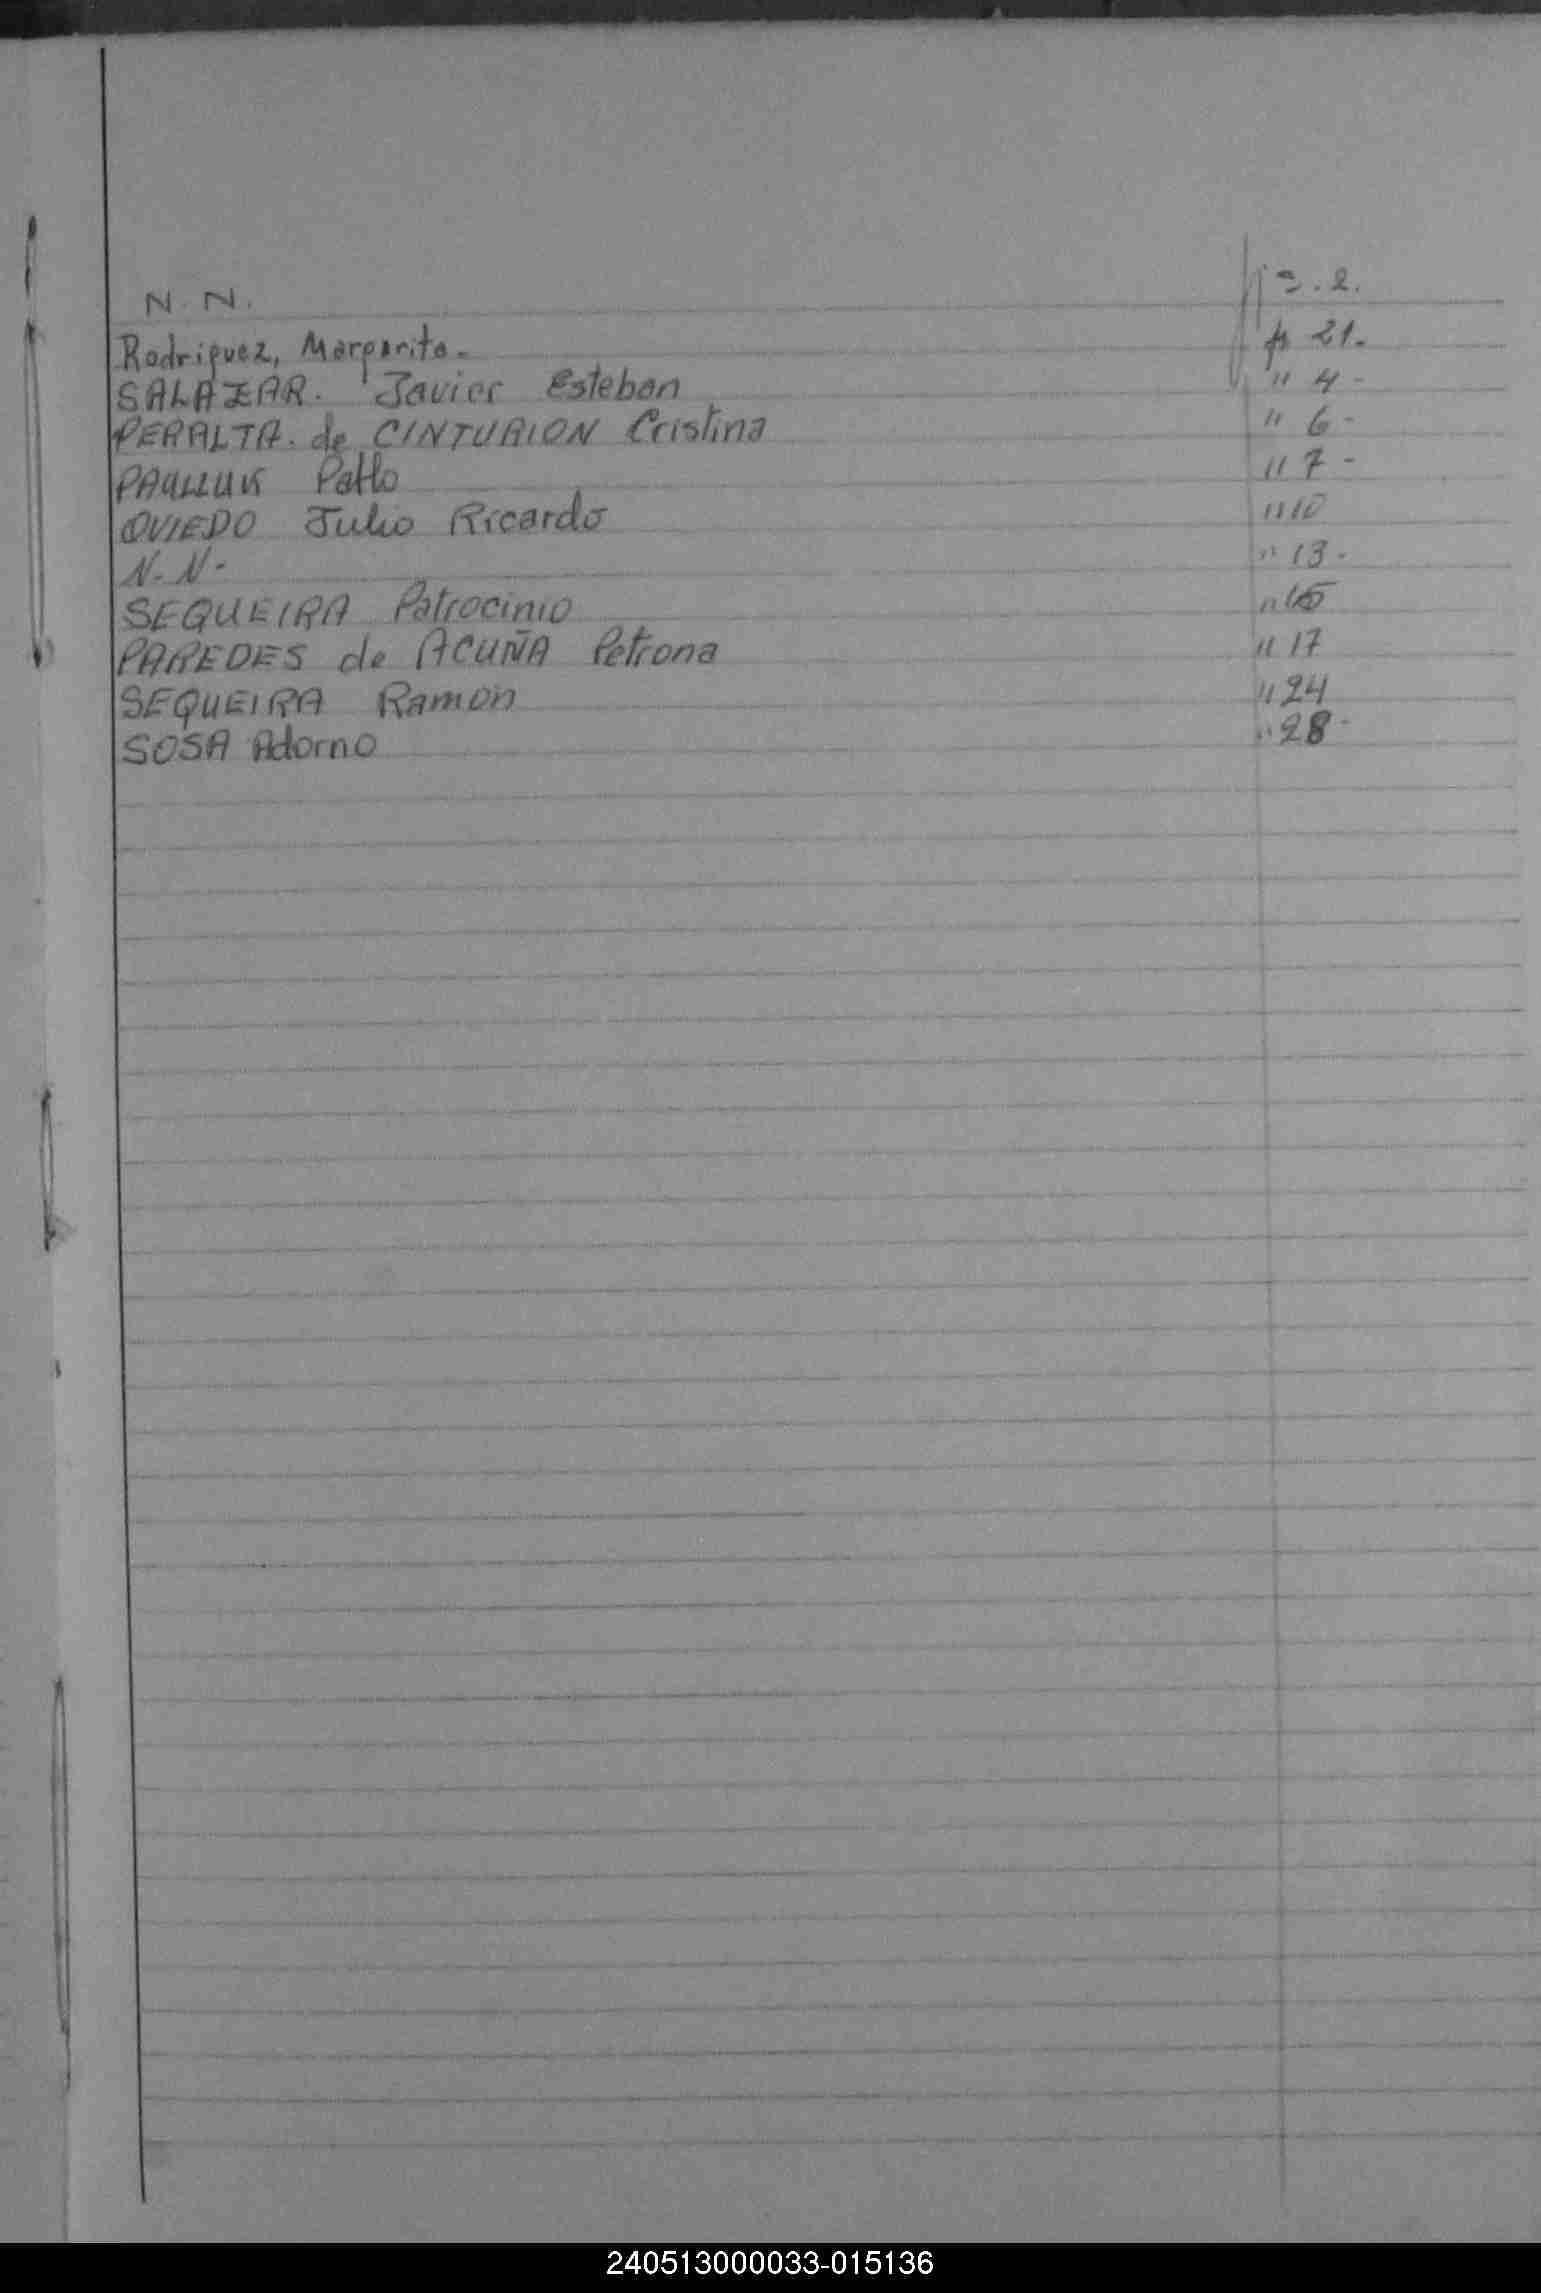 N. N. 2.
Rodriguez, Margarita. 21.
SALAZAR. Javier Esteban " 4 -
PERALTA. de CINTURION Cristina " 6 -
Pablo " 7 -
OVIEDO Julio Ricardo " 10
N. N. " 13 -
SEQUEIRA Patrocinio " 15
PAREDES de ACUÑA Petrona " 17
SEQUEIRA Ramon " 24
SOSA Adorno " 28 -
240513000033-015136